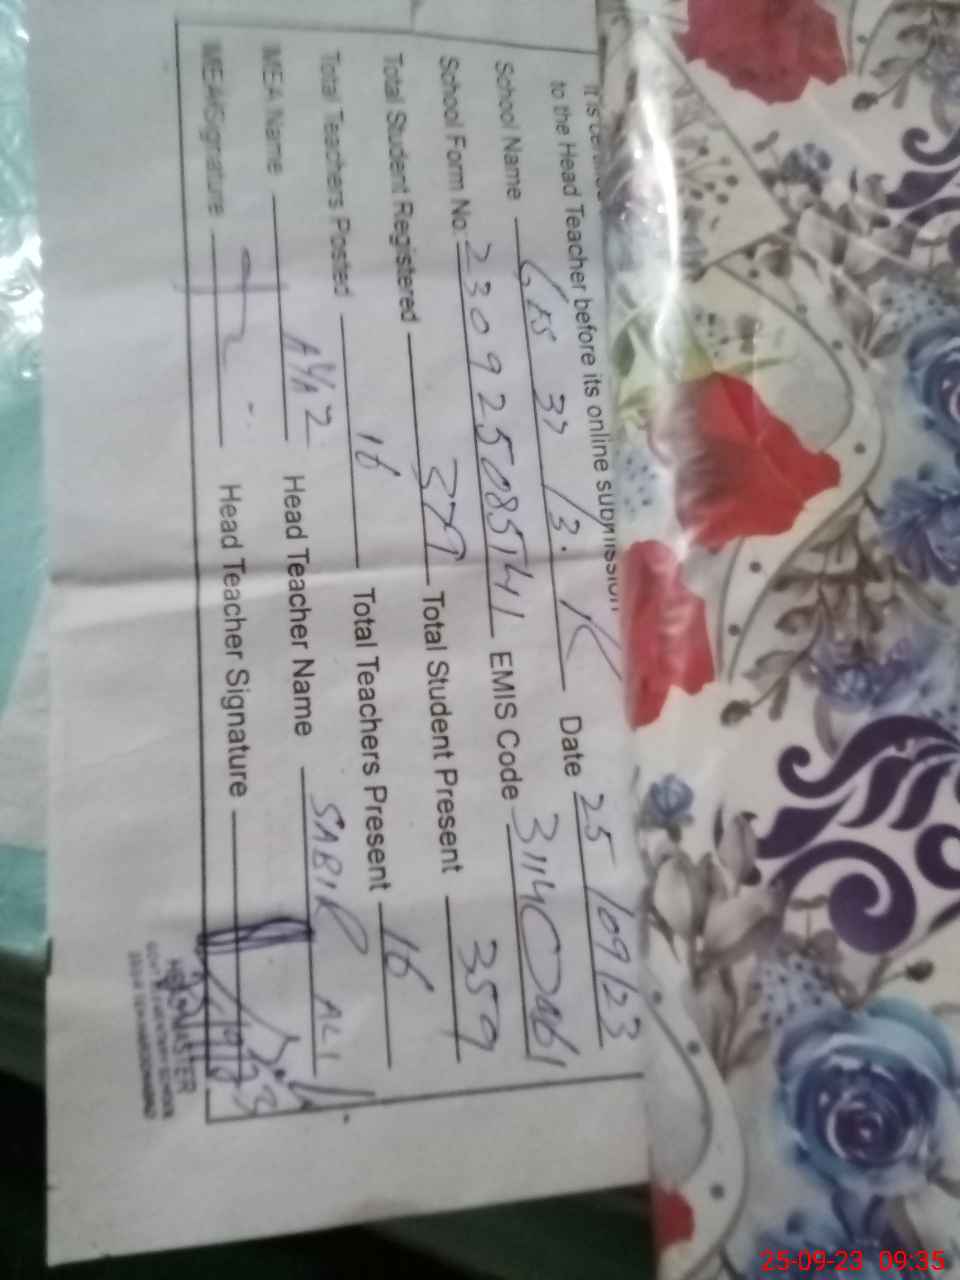 to the Head Teacher before its online submission
School Name GES 37/3.R Date 25/09/23
School Form No. 230925085741 EMIS Code 31140061
Total Student Registered 379 Total Student Present 359
Total Teachers Posted 16 Total Teachers Present 16
MEA Name Head Teacher Name SABIR ALI
MEA Signature Head Teacher Signature
HEADMASTER
25-09-23 09:35